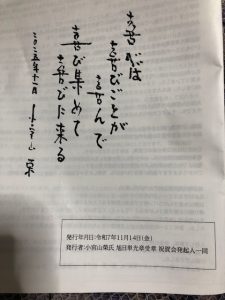 喜びは
喜びごとが
喜んで
喜び集めて
喜びに来る
二〇二五年十一月 小宮山 栄
発行年月日:令和7年11月14日(金)
発行者:小宮山榮氏 旭日単光章受章 祝賀会発起人一同